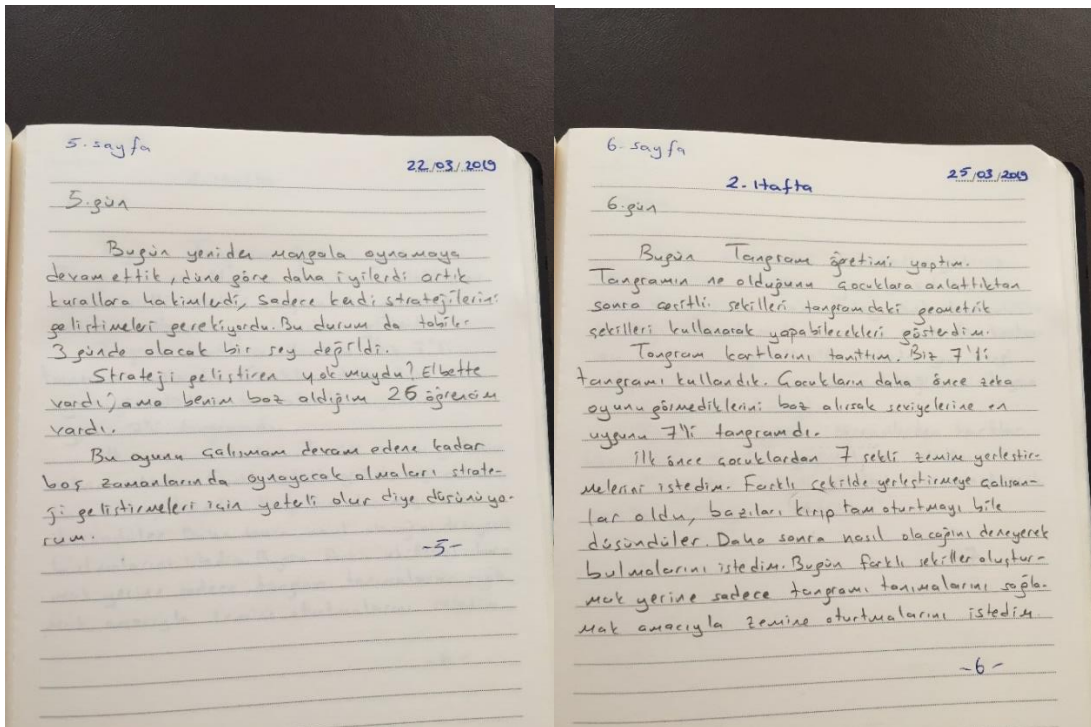 5. sayfa
22/03/2019
5.gün
Bugün yeniden mangala oynamaya
devam ettik, düne göre daha iyilerdi artık
kurallara hakimlerdi, sadece kendi stratejilerini
geliştirmeleri gerekiyordu. Bu durum da tabiki
3 günde olacak bir şey değildi.
Strateji geliştiren yok muydu? Elbette
vardı, ama benim baz aldığım 26 öğrencim
vardı.
Bu oyunu çalışmam devam edene kadar
boş zamanlarında oynayacak olmaları strate-
ji geliştirmeleri için yeterli olur diye düşünüyo-
rum.
-5-
6. sayfa
25/03/2019
2. Hafta
6.gün
Bugün Tangram öğretimi yaptım.
Tangramın ne olduğunu çocuklara anlattıktan
sonra çeşitli şekilleri tangramdaki geometrik
şekilleri kullanarak yapabilecekleri gösterdim.
Tangram kartlarını tanıttım. Biz 7'li
tangramı kullandık. Çocukların daha önce zeka
oyunu görmediklerini baz alırsak seviyelerine en
uygunu 7'li tangramdı.
İlk önce çocuklardan 7 şekli zemine yerleştir-
melerini istedim. Farklı şekilde yerleştirmeye çalışan-
lar oldu, bazıları kırıp tam oturtmayı bile
düşündüler. Daha sonra nasıl olacağını deneyerek
bulmalarını istedim. Bugün farklı şekiller oluştur-
mak yerine sadece tangramı tanımalarını sağla-
mak amacıyla zemine oturtmalarını istedim
-6-